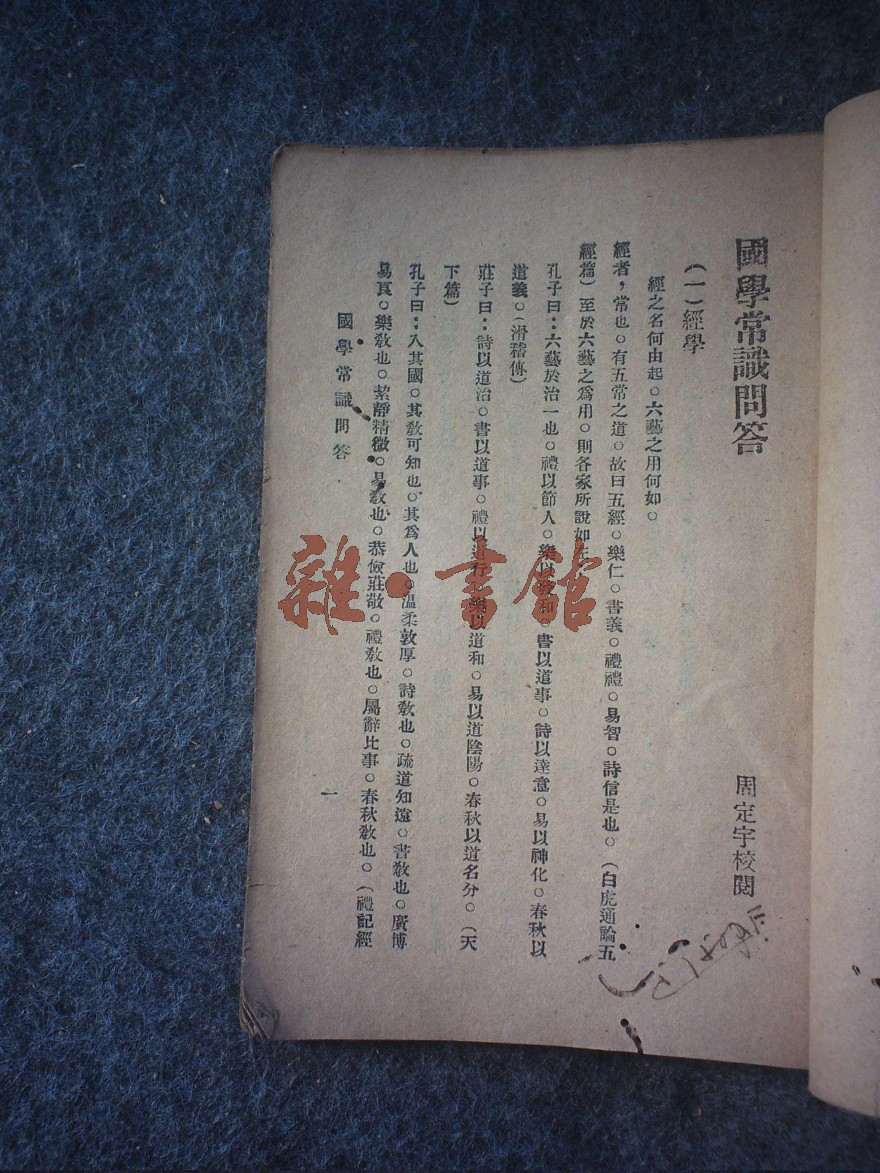 國學常識問答
周定宇校閱
(一)經學
經之名何由起。六藝之用何如。
經者,常也。有五常之道。故曰五經。樂仁。書義。禮禮。易智。詩信是也。(白虎通論五
經篇)至於六藝之爲用。則各家所說如左
孔子曰:六藝於治一也。禮以節人。樂以發和。書以道事。詩以達意。易以神化。春秋以
道義。(滑稽傳)
莊子曰:詩以道治。書以道事。禮以道行。樂以道和。易以道陰陽。春秋以道名分。(天
下篇)
孔子曰:入其國。其教可知也。其爲人也。溫柔敦厚。詩教也。疏道知遠。書教也。廣博
易良。樂教也。絜靜精微。易教也。恭儉莊敬。禮教也。屬辭比事。春秋教也。(禮記經
國學常識問答
一
雜·書館